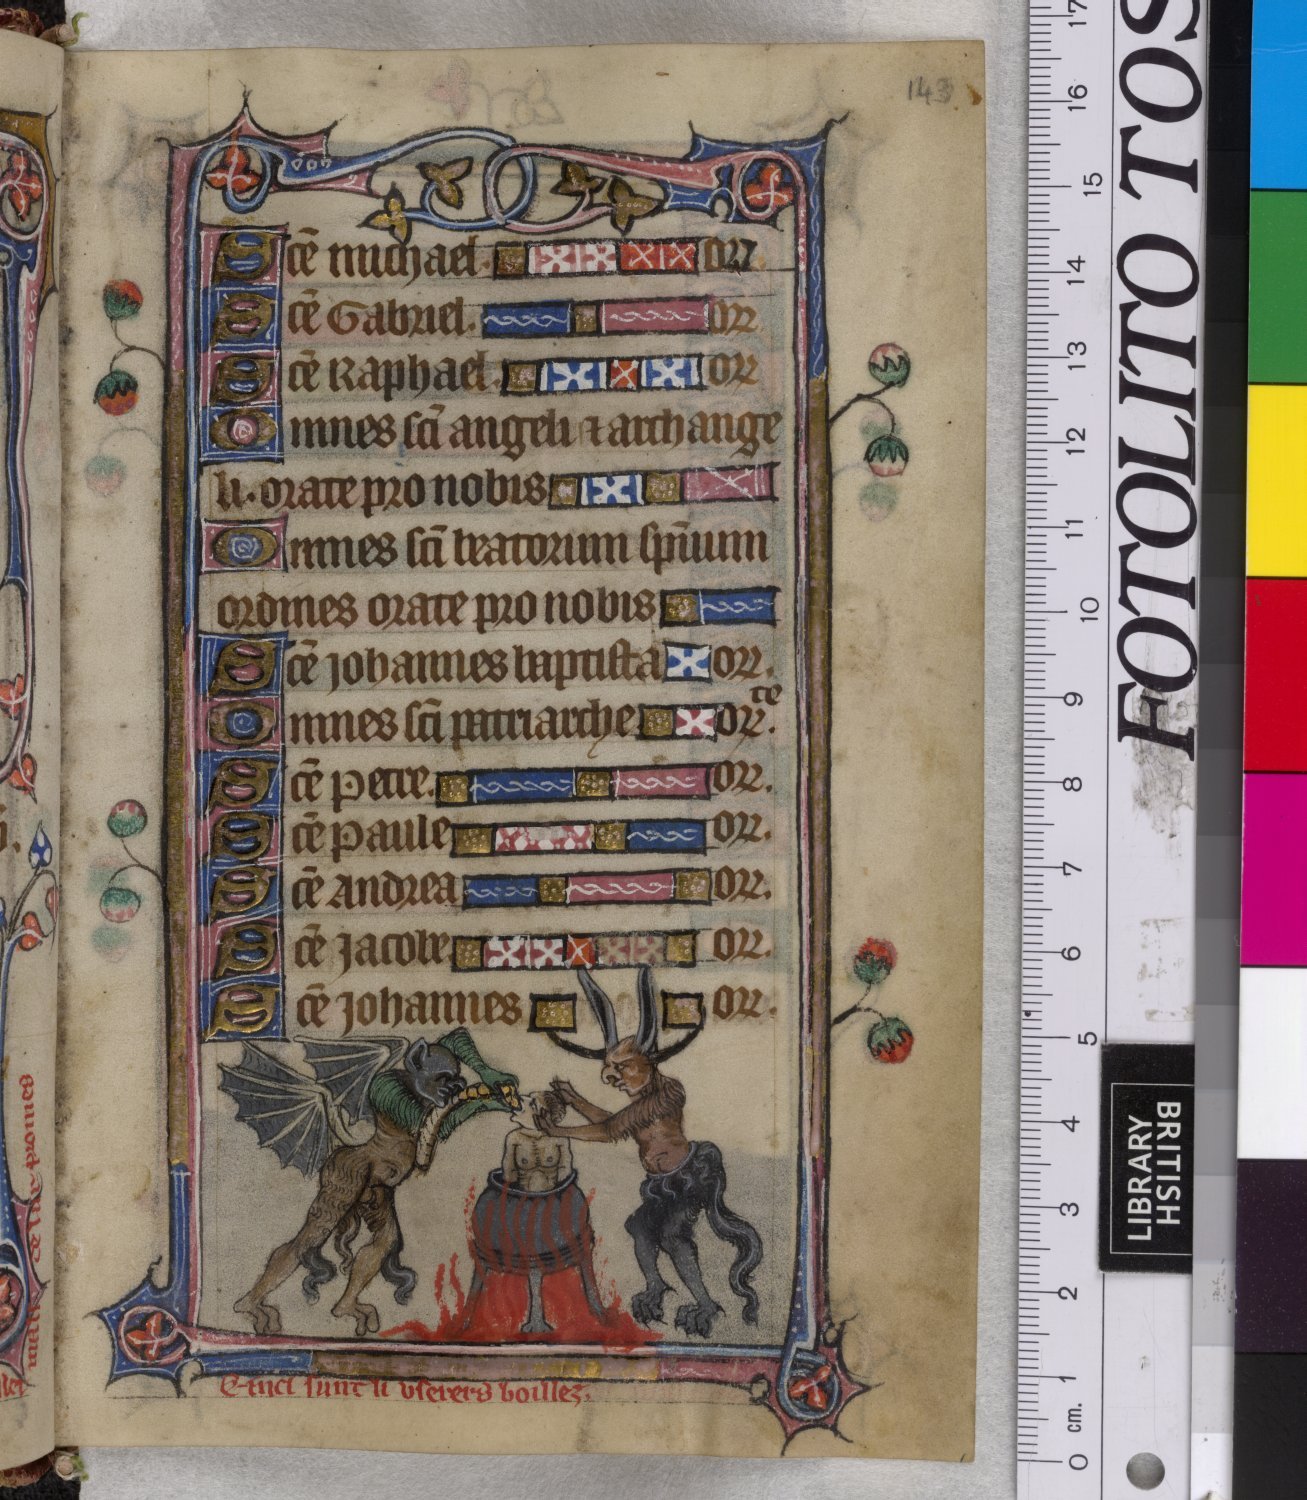 143
Sc̄e michael. or̄
Sc̄e Gabriel. or̄
Sc̄e Raphael. or̄
Omnes sc̄i angeli ⁊ archange
li. orate pro nobis
Omnes sc̄i beatorum sp̄uum
ordines orate pro nobis
Sc̄e Johannes baptista or̄.
Omnes sc̄i patriarche or̄te.
Sc̄e Petre. or̄.
Sc̄e Paule or̄.
Sc̄e Andrea or̄.
Sc̄e Jacobe or̄.
Sc̄e Johannes or̄.
E-inci sunt li userers boillez.
FOTOLITOTTOS
BRITISH
LIBRARY
0 cm. 1 2 3 4 5 6 7 8 9 10 11 12 13 14 15 16 17